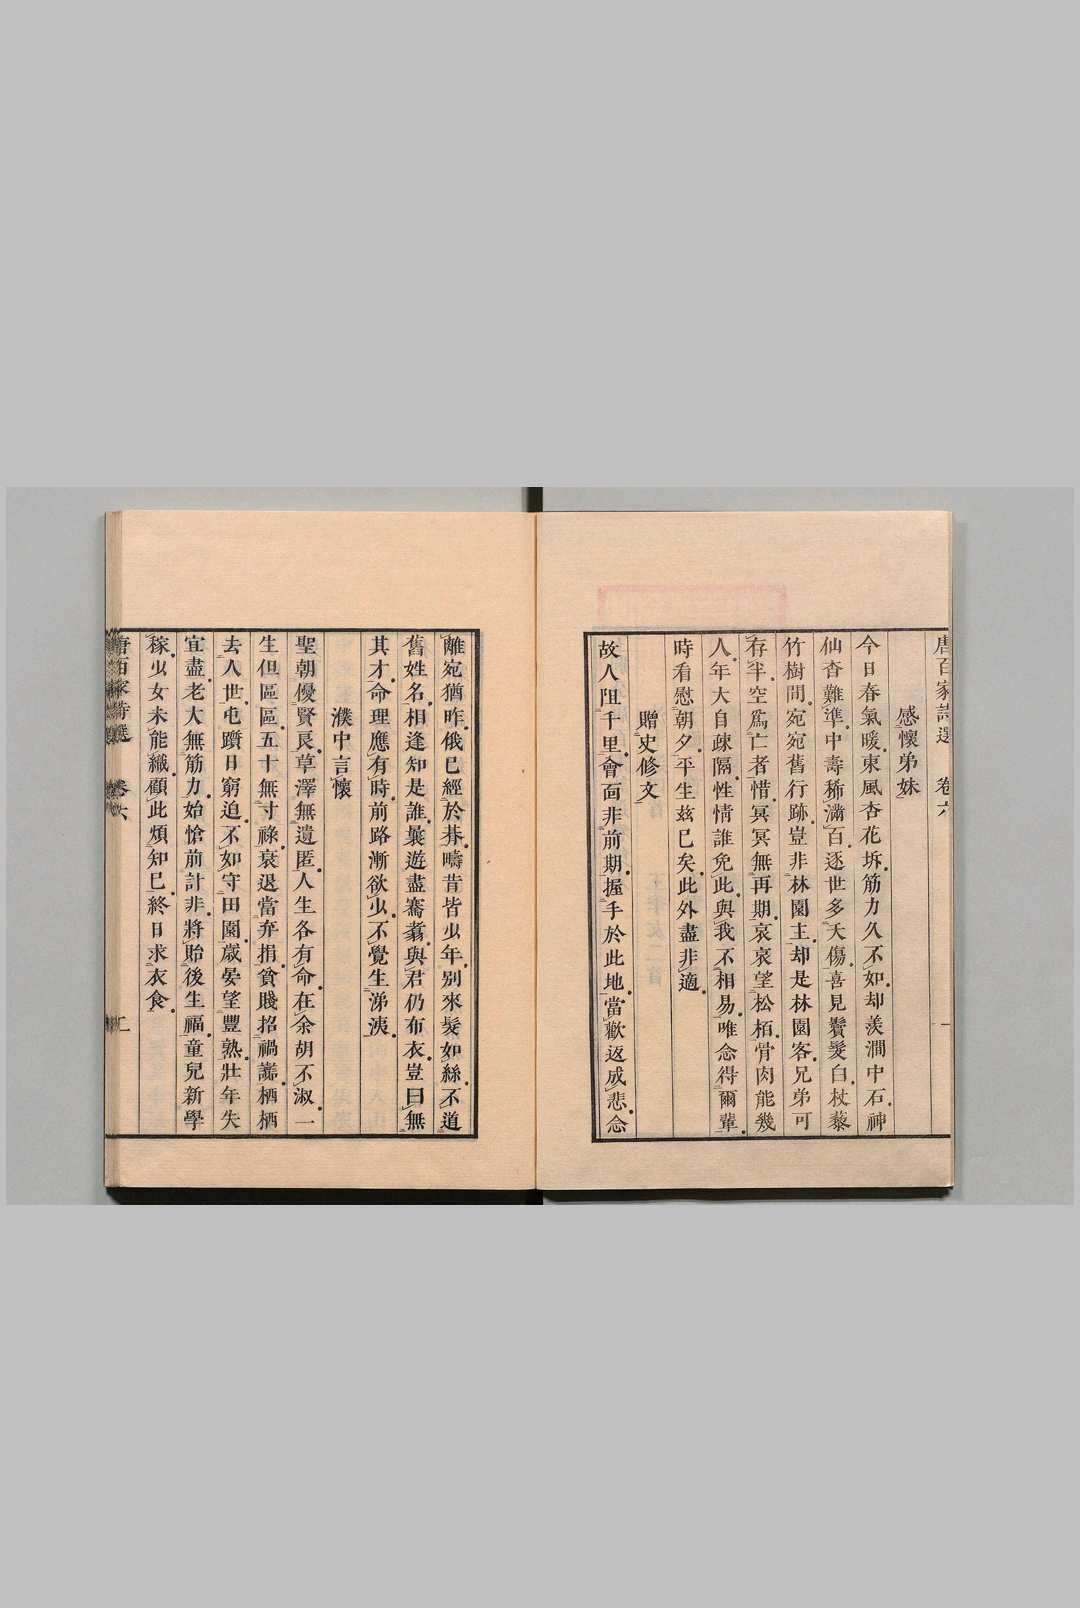 唐百家詩選 卷六 一
感懷弟妹
今日春氣暖東風杏花坼筋力久不如却羨澗中石神
仙杳難準中壽稀滿百逐世多夭傷喜見鬢髮白杖藜
竹樹間宛宛舊行跡豈非林園主却是林園客兄弟可
存半空爲亡者惜冥冥無再期哀哀望松栢骨肉能幾
人年大自疎隔性情誰免此與我不相易唯念得爾輩
時看慰朝夕平生茲已矣此外盡非適
贈史修文
故人阻千里會面非前期握手於此地當歡返成悲念
離宛猶昨俄已經於朞疇昔皆少年別來髮如絲不道
舊姓名相逢知是誰曩遊盡騫翥與君仍布衣豈曰無
其才命理應有時前路漸欲少不覺生涕洟
濮中言懷
聖朝優賢良草澤無遺匿人生各有命在余胡不淑一
生但區區五十無寸祿衰退當弃捐貧賤招禍讟栖栖
去人世屯躓日窮迫不如守田園歲晏望豐熟壯年失
宜盡老大無筋力始愴前計非將貽後生福童兒新學
稼少女未能織顧此煩知已終日求衣食
唐百家詩選 卷六